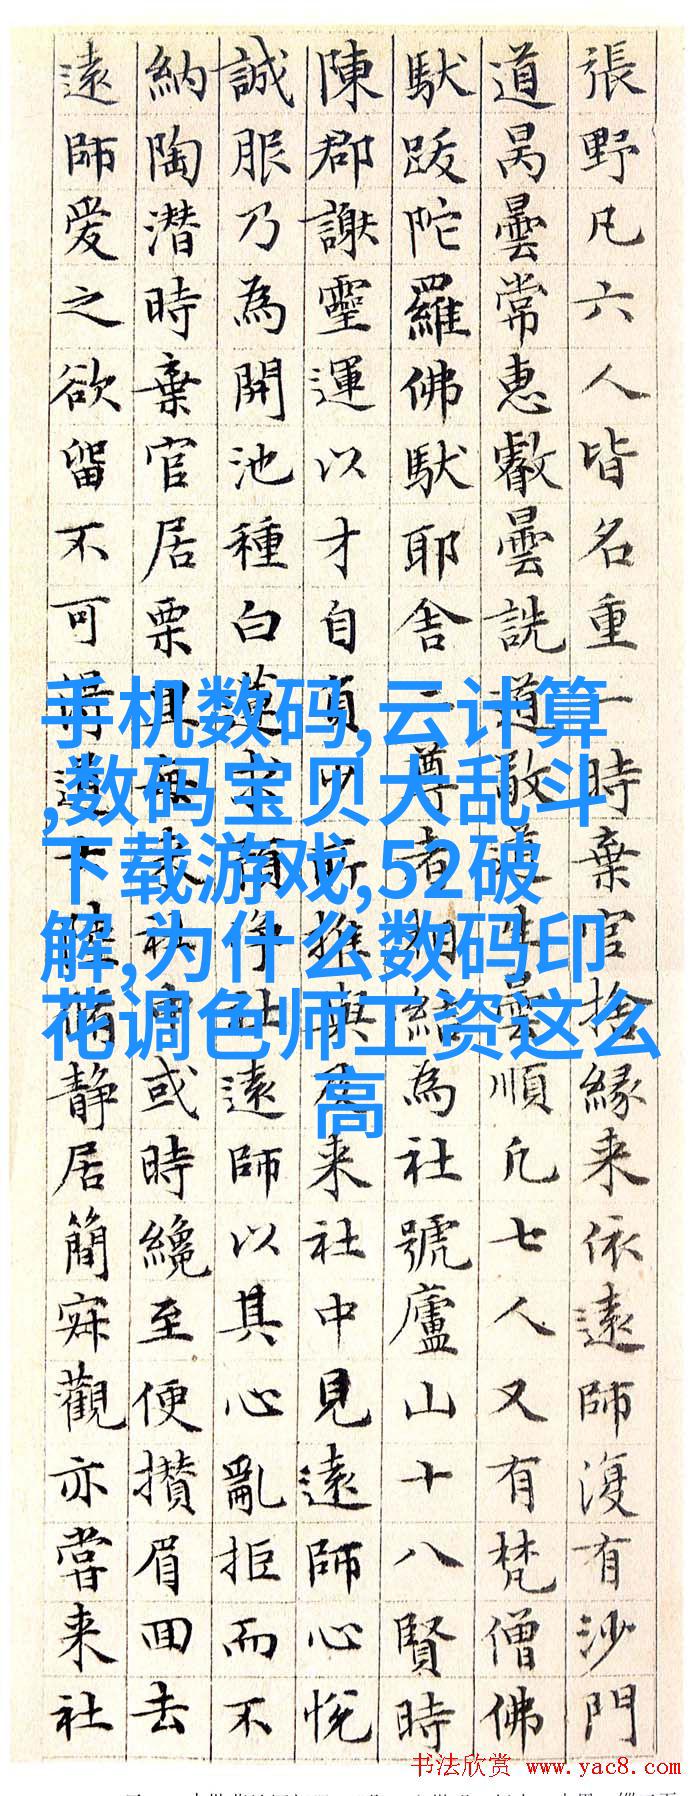 張野凡六人皆名重一時棄官捨緣来依遠師復有沙門
道昺曇常惠叡曇詵道敬道生曇順凡七人又有梵僧佛
馱跋陀羅佛馱耶舍二尊者相結為社號廬山十八賢時
陳郡謝靈運以才自負少所推與及来社中見遠師心悅
誠服乃為開池種白蓮求預淨社遠師以其心亂拒而不
納陶潛時棄官居栗里每来社中或時纔至便攢眉回去
遠師愛之欲留不可得道士陸脩靜居簡寂觀亦嘗来社
手机数码,云计算
,数码宝贝大乱斗
下载游戏,52破
解,为什么数码印
花调色师工资这么
高
书法欣赏 www.yac8.com